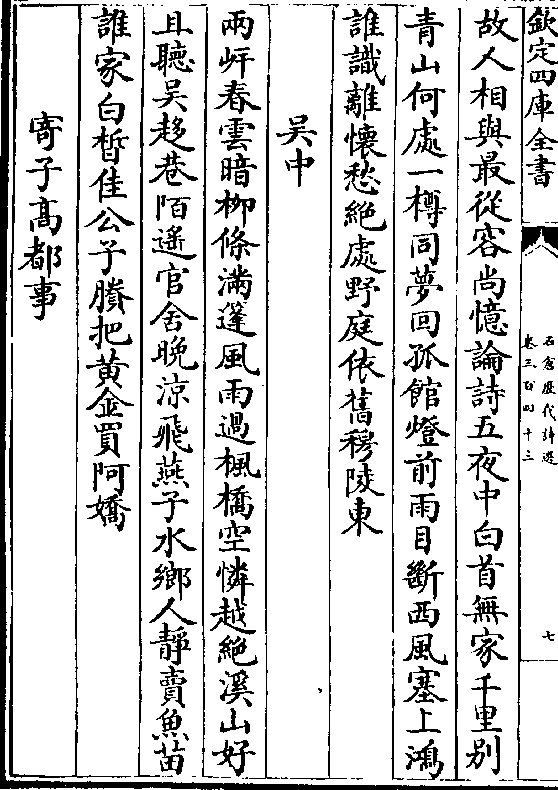 欽定四庫全書
石倉歷代詩選
卷三百四十三
七
故人相與最從容尚憶論詩五夜中白首無家千里别
青山何處一樽同夢回孤館燈前雨目斷西風塞上鴻
誰識離懷愁絶處野庭依舊穆陵東
吴中
兩岍春雲暗柳條滿篷風雨過楓橋空憐越絶溪山好
且聽吴趍巷陌遙官舍晚涼飛燕子水鄉人靜賣魚苗
誰家白晳佳公子賸把黄金買阿嬌
寄子髙都事